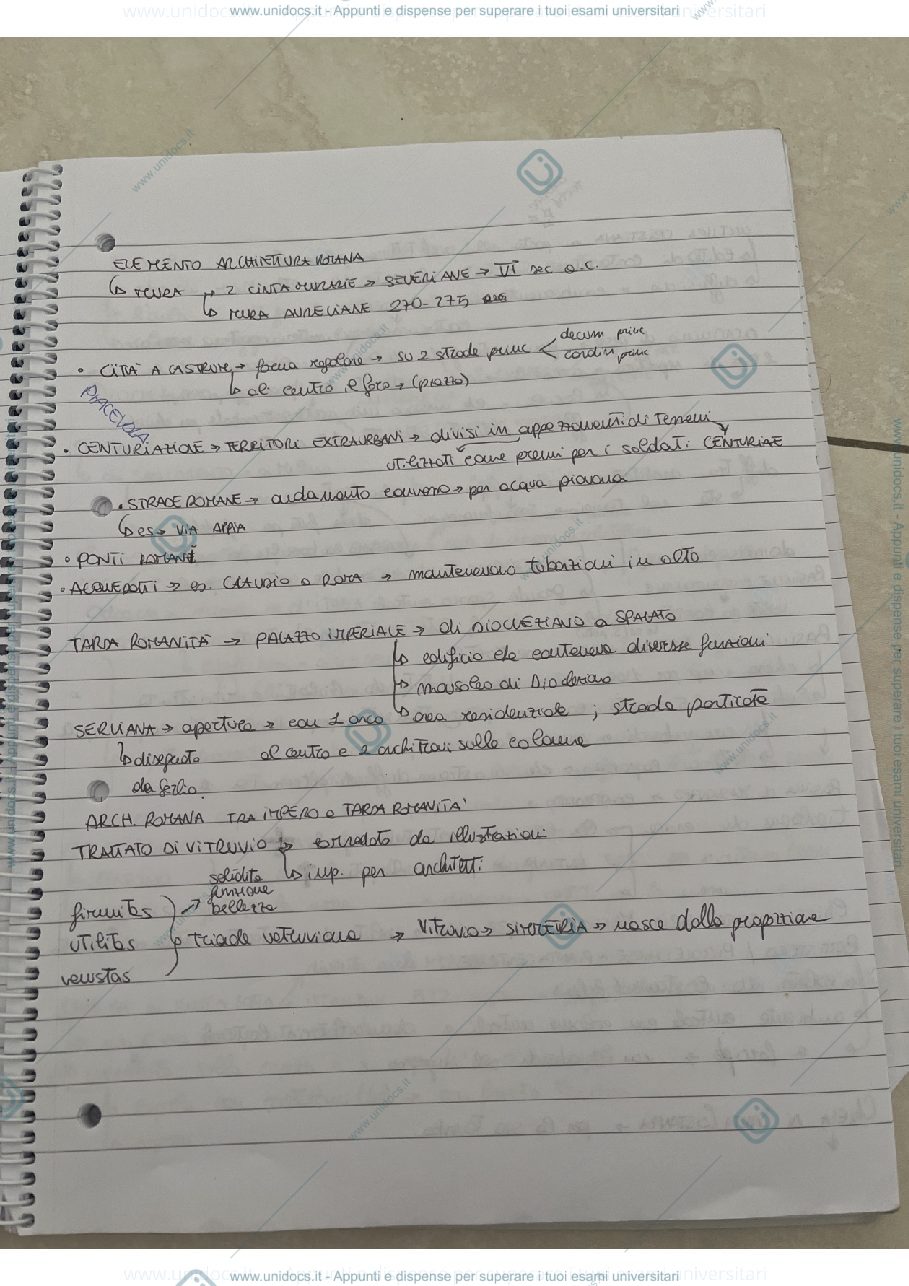 www.unidocs.it - Appunti e dispense per superare i tuoi esami universitari
ELEMENTO ARCHITETTURA ROMANA
↳ MURA ↱ 2 CINTA MURARIE → SEVERIANE → VI sec a.C.
↳ MURA AURELIANE 270-275
• CITTÀ A CASTRUM → forma regolare → su 2 strade princ < decum princ
cardum princ
↳ al centro il foro → (piazza)
PIACEVOLA
• CENTURIAZIONE → TERRITORI EXTRAURBANI → divisi in appezzamenti di terreni
utilizzati come premi per i soldati: CENTURIAE
• STRADE ROMANE → andamento convesso → per acqua piovana
↳ es → VIA APPIA
• PONTI ROMANI
• ACQUEDOTTI → es. CLAUDIO a ROMA → mantenevano tubazioni in alto
TARDA ROMANITÀ → PALAZZO IMPERIALE → di DIOCLEZIANO a SPALATO
↳ edificio che conteneva diverse funzioni
↳ mausoleo di
SERLIANA → apertura → con 1 arco ↳ area residenziale ; strada porticata
↳ disegnata al centro e 2 architravi sulle colonne
da Serlio.
ARCH. ROMANA TRA IMPERO e TARDA ROMANITA'
TRATTATO DI VITRUVIO ↳ corredato da illustrazioni
↳ imp. per architetti
solidità
funzione
firmitas bellezza
utilitas } triade vetruviana → Vitruvio → SIMMETRIA → nasce dalla proporzione
venustas
www.unidocs.it - Appunti e dispense per superare i tuoi esami universitari